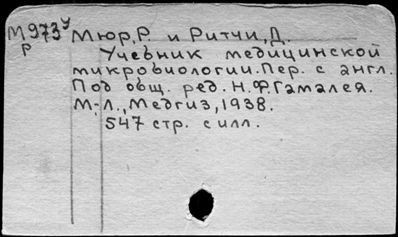 М973У Мюр, Р. и Ритчи, Д.
Р
Учебник медицинской
микробиологии. Пер. с англ.
Под общ. ред. Н.Ф. Гамалея.
М-Л., Медгиз, 1938.
547 стр. с илл.